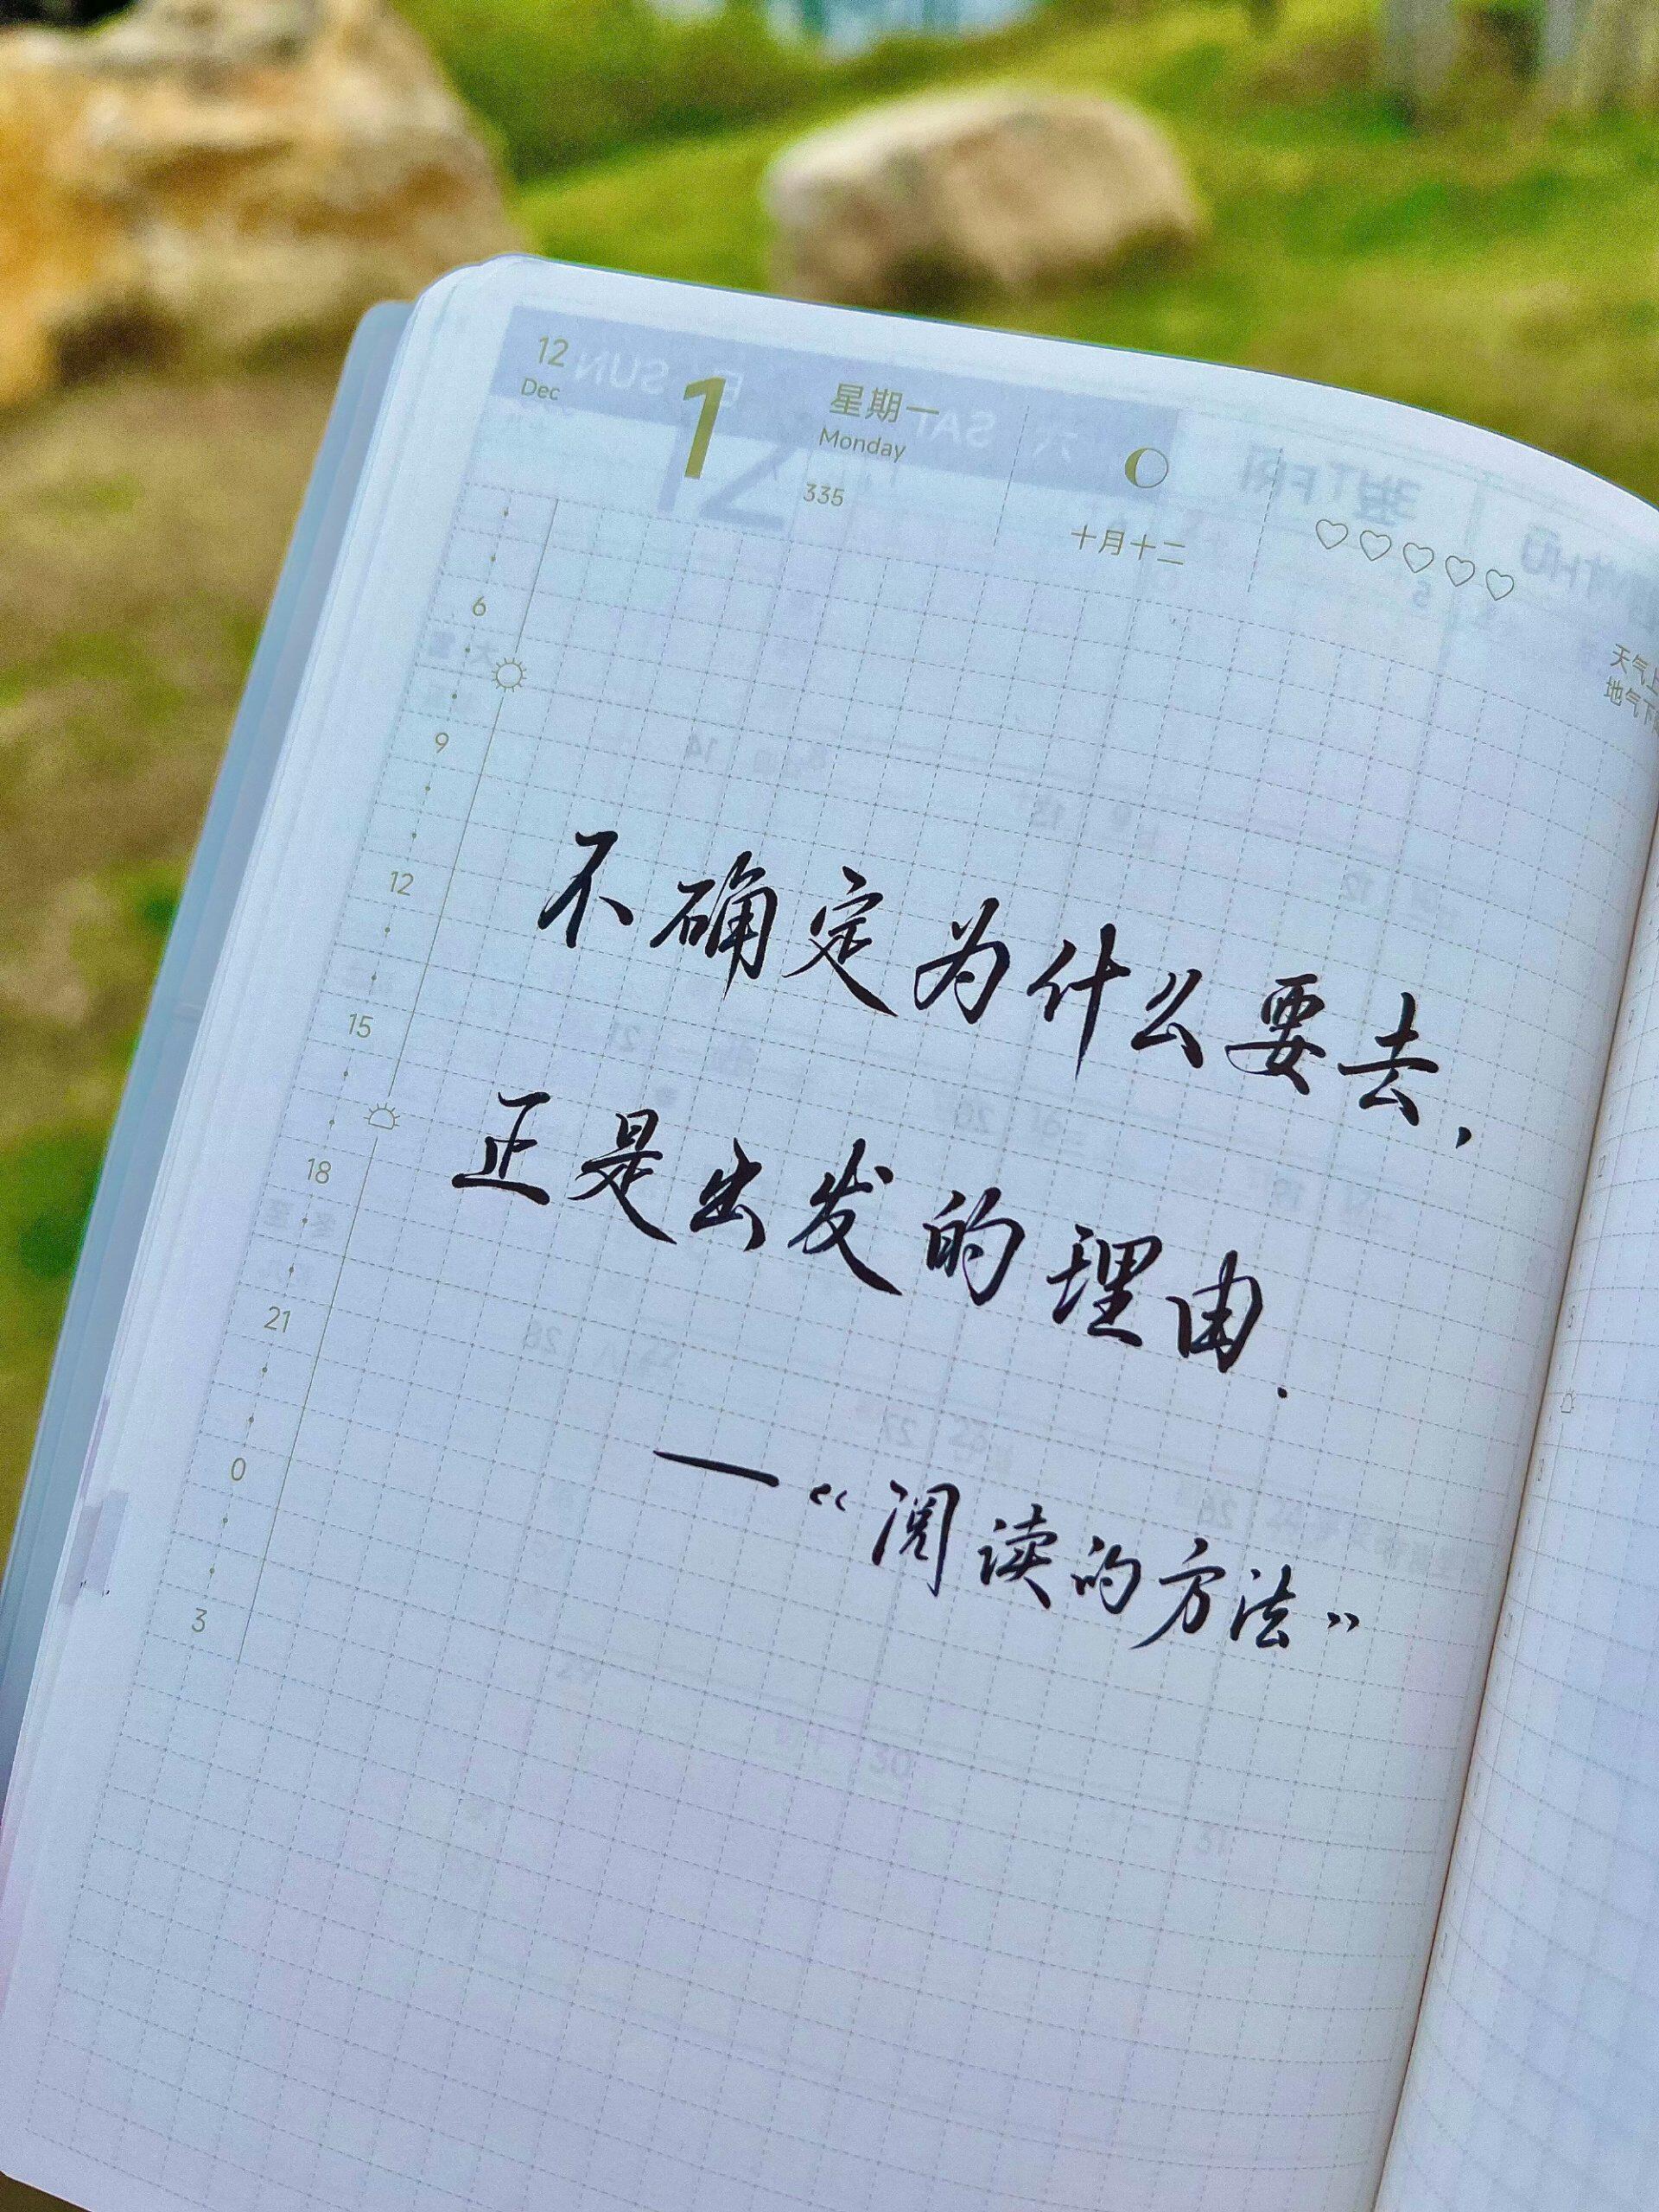 12
Dec
1
星期一
Monday
335
十月十二
♡♡♡♡♡
天气上
地气下
6
9
12
15
18
21
0
3
不确定为什么要去,
正是出发的理由.
—《阅读的方法》